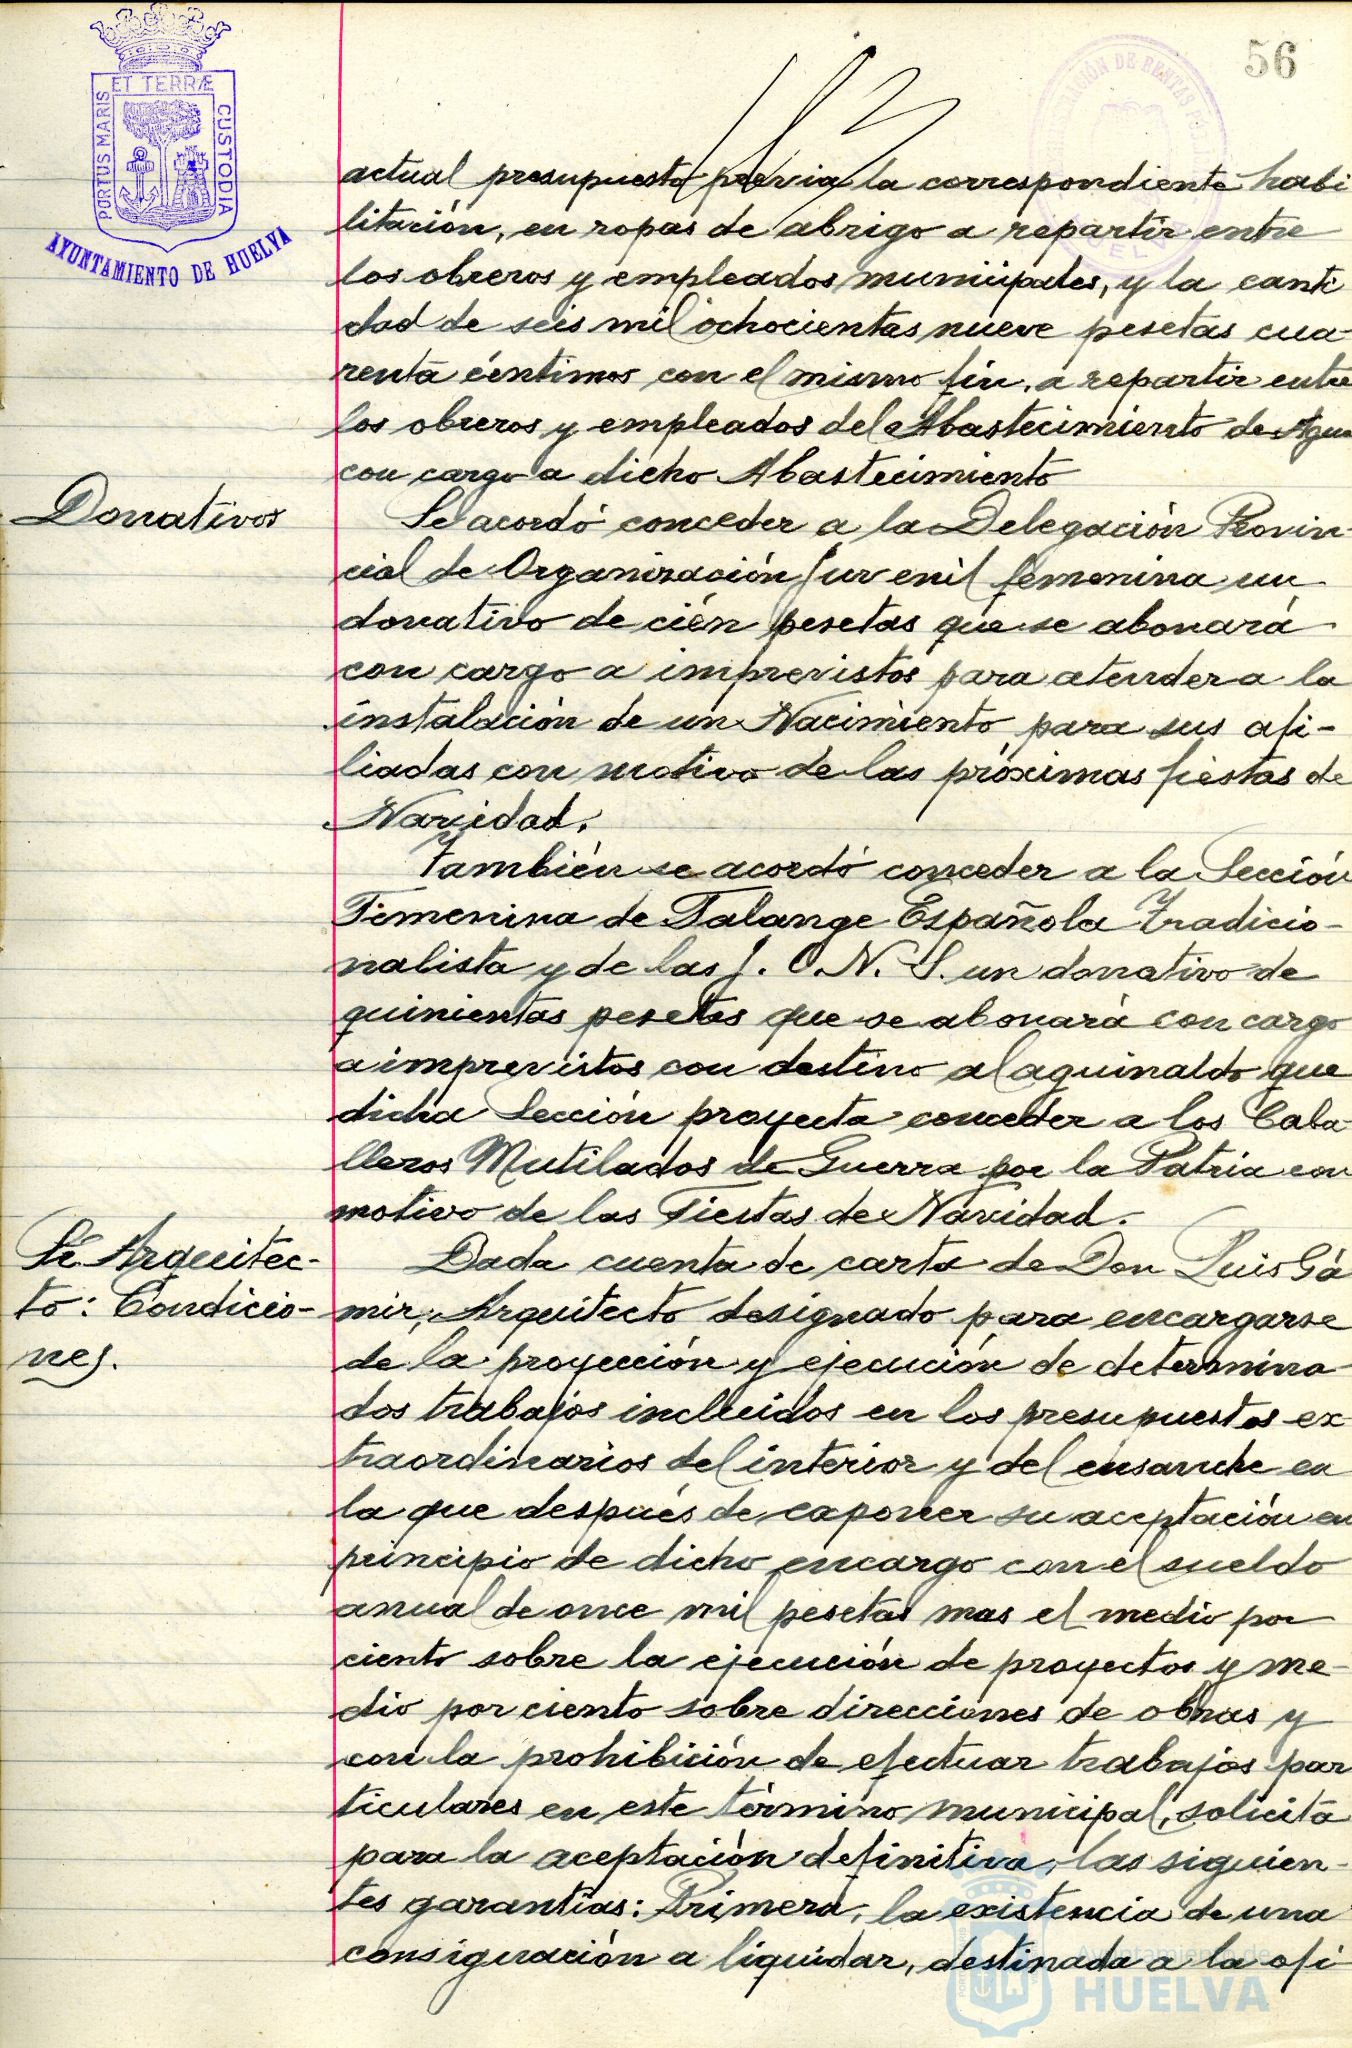 56
PORTUS MARIS ET TERRÆ CUSTODIA
AYUNTAMIENTO DE HUELVA
actual presupuesto previa la correspondiente habi
litación, en ropas de abrigo a repartir entre
los obreros y empleados municipales, y la canti
dad de seis mil ochocientas nueve pesetas cua-
renta céntimos con el mismo fin, a repartir entre
los obreros y empleados del Abastecimiento de Agua
con cargo a dicho Abastecimiento
Donativos
Se acordó conceder a la Delegación Provin-
cial de Organización Juvenil femenina un
donativo de cién pesetas que se abonará
con cargo a imprevistos para atender a la
instalación de un Nacimiento para sus afi-
liadas con motivo de las próximas fiestas de
Navidad.
También se acordó conceder a la Sección
Femenina de Falange Española Tradicio-
nalista y de las J. O. N. S. un donativo de
quinientas pesetas que se abonará con cargo
a imprevistos con destino al aguinaldo que
dicha Sección proyecta conceder a los Caba-
lleros Mutilados de Guerra por la Patria con
motivo de las Fiestas de Navidad.
Sr. Arquitec-
to: Condicio-
nes.
Dada cuenta de carta de Don Luis Gá
mir, Arquitecto designado para encargarse
de la proyección y ejecución de determina
dos trabajos incluidos en los presupuestos ex-
traordinarios del interior y del ensanche en
la que después de exponer su aceptación en
principio de dicho encargo con el sueldo
anual de once mil pesetas mas el medio por
ciento sobre la ejecución de proyectos y me-
dio por ciento sobre direcciones de obras y
con la prohibición de efectuar trabajos par
ticulares en este término municipal, solicita
para la aceptación definitiva, las siguien-
tes garantías: Primera, la existencia de una
consignación a liquidar, destinada a la ofi
Ayuntamiento de
HUELVA